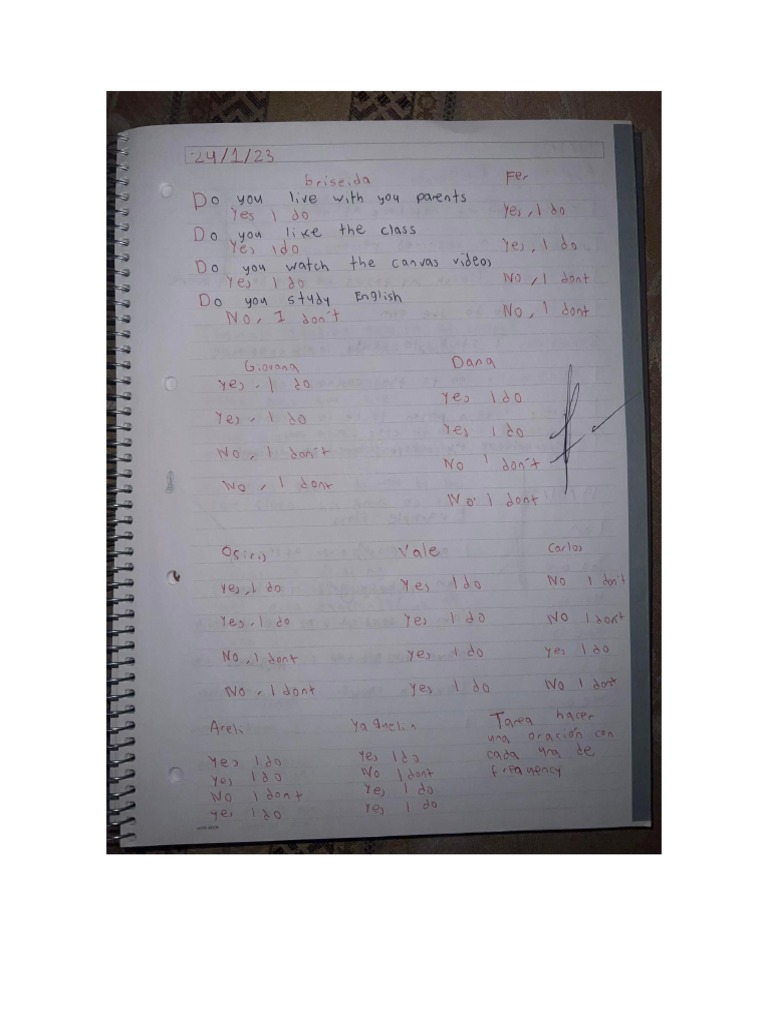 24/1/23
Briseida Fer
Do you live with you parents
Yes I do Yes, I do
Do you like the class
Yes I do Yes, I do
Do you watch the canvas videos
Yes I do No, I dont
Do you study English
No, I don't No, I dont
Giovana Dana
Yes, I do Yes I do
Yes, I do Yes I do
No, I don't No I don't
No, I dont No I dont
Osiris Vale Carlos
Yes, I do Yes I do No I don't
Yes, I do Yes I do No I dont
No, I dont Yes I do Yes I do
No, I dont Yes I do No I dont
Areli
Yes I do Yes I do
Yes I do No I dont
No I dont Yes I do
Yes I do Yes I do
Tarea hacer
una oración con
cada una de
frequency